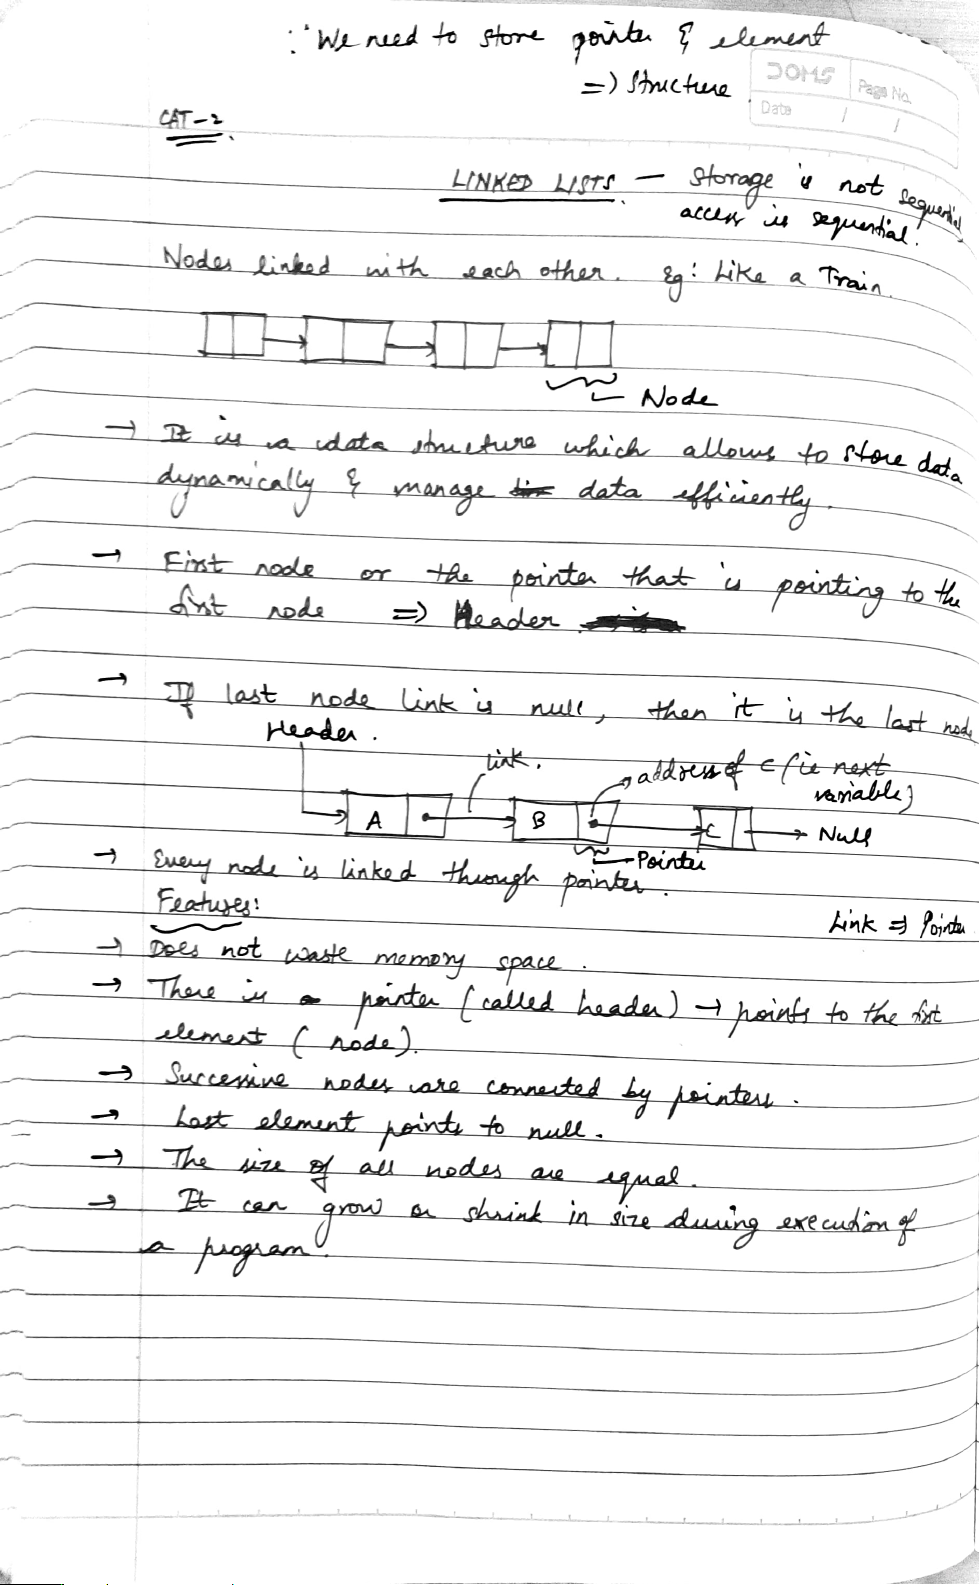 ∵ We need to store pointer & element
=> Structure.
DOMS
Page No.
Date / /
CAT-2.
LINKED LISTS. - Storage is not sequential
access is sequential.
Nodes linked with each other. Eg: Like a Train.
Node
→ It is a data structure which allows to store data
dynamically & manage data efficiently.
→ First node or the pointer that is pointing to the
first node => Header.
→ If last node link is null, then it is the last node
Header.
link.
address of C (ie next
variable)
A B C → Null
Pointer
→ Every node is linked through pointer.
Link => Pointer
Features:
→ Does not waste memory space.
→ There is a pointer (called header) → points to the first
element (node).
→ Successive nodes are connected by pointers.
→ Last element points to null.
→ The size of all nodes are equal.
→ It can grow or shrink in size during execution of
a program.